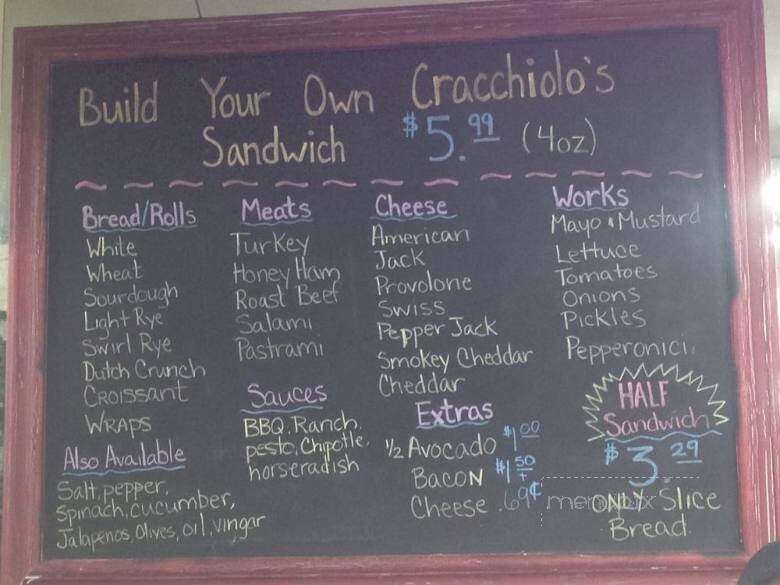 Build Your Own Cracchiolo's
Sandwich $5.99 (4oz)
Bread/Rolls
White
Wheat
Sourdough
Light Rye
Swirl Rye
Dutch Crunch
Croissant
Wraps
Also Available
Salt, pepper,
Spinach, cucumber,
Jalapenos, Olives, oil, vingar
Meats
Turkey
Honey Ham
Roast Beef
Salami
Pastrami
Sauces
BBQ, Ranch,
pesto, Chipotle,
horseradish
Cheese
American
Jack
Provolone
Swiss
Pepper Jack
Smokey Cheddar
Cheddar
Extras
1/2 Avocado $1.00
Bacon $1.50+
Cheese .69¢
Works
Mayo & Mustard
Lettuce
Tomatoes
Onions
Pickles
Pepperonici
HALF
Sandwich
$3.29
ONLY Slice
Bread
menupix